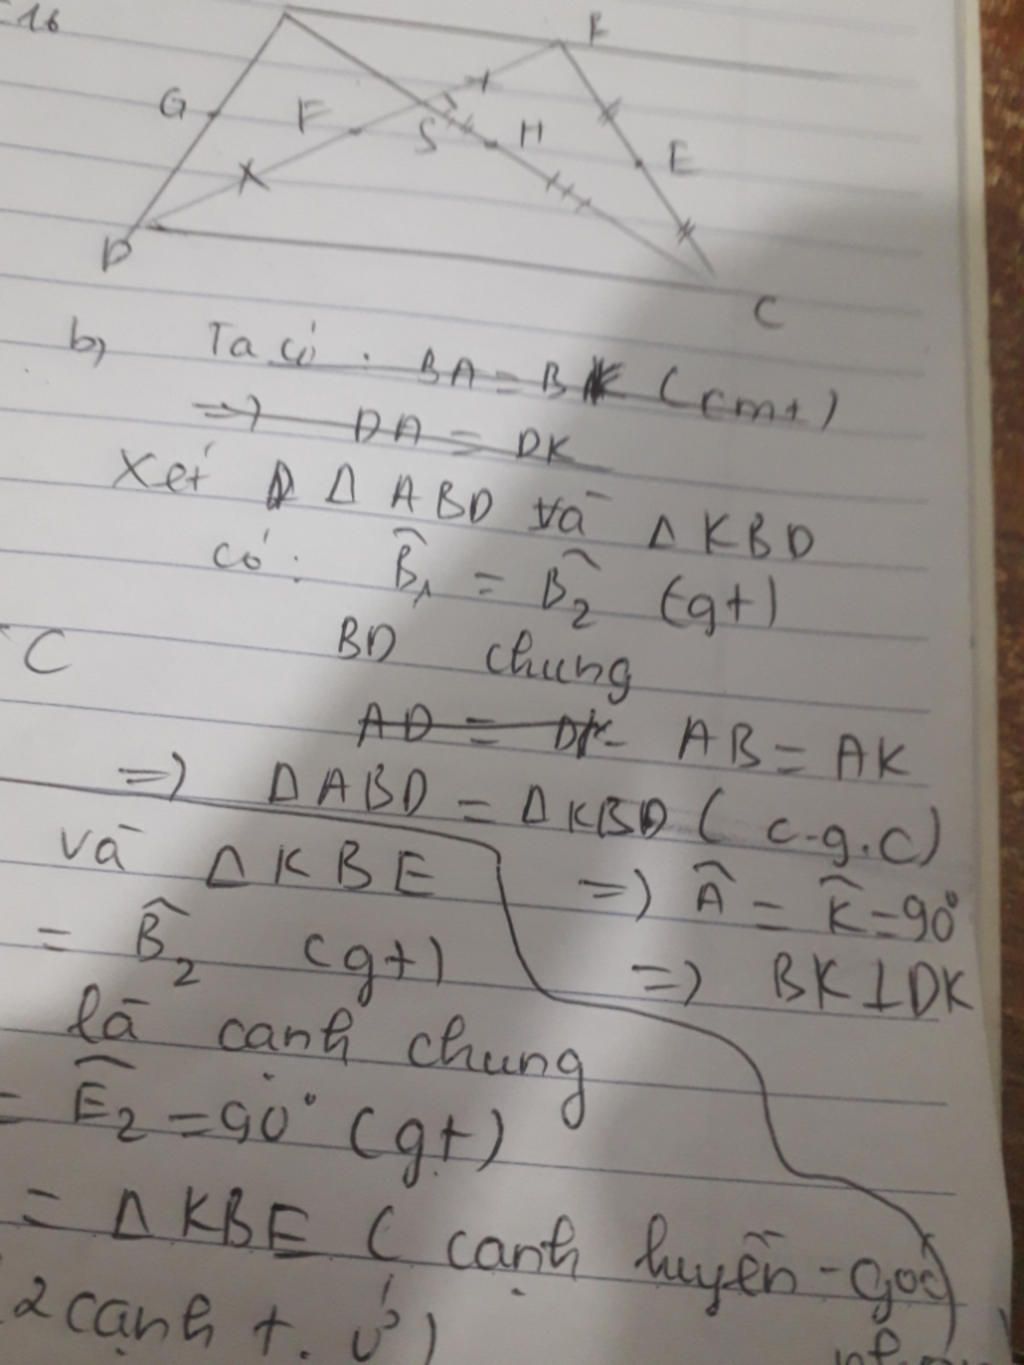 16
K
G
F
S
H
E
D
C
b, Ta có: BA = BK (cmt)
=> DA = DK
Xét Δ ABD và Δ KBD
có: B̂₁ = B̂₂ (gt)
C
BD chung
AD = DK AB = AK
=> ΔABD = ΔKBD (c.g.c)
=> Â = K̂ = 90°
=> BK ⊥ DK
và Δ KBE
= B̂₂ (gt)
là cạnh chung
= Ê₂ = 90° (gt)
= Δ KBE (cạnh huyền - góc
2 cạnh t.ứ)